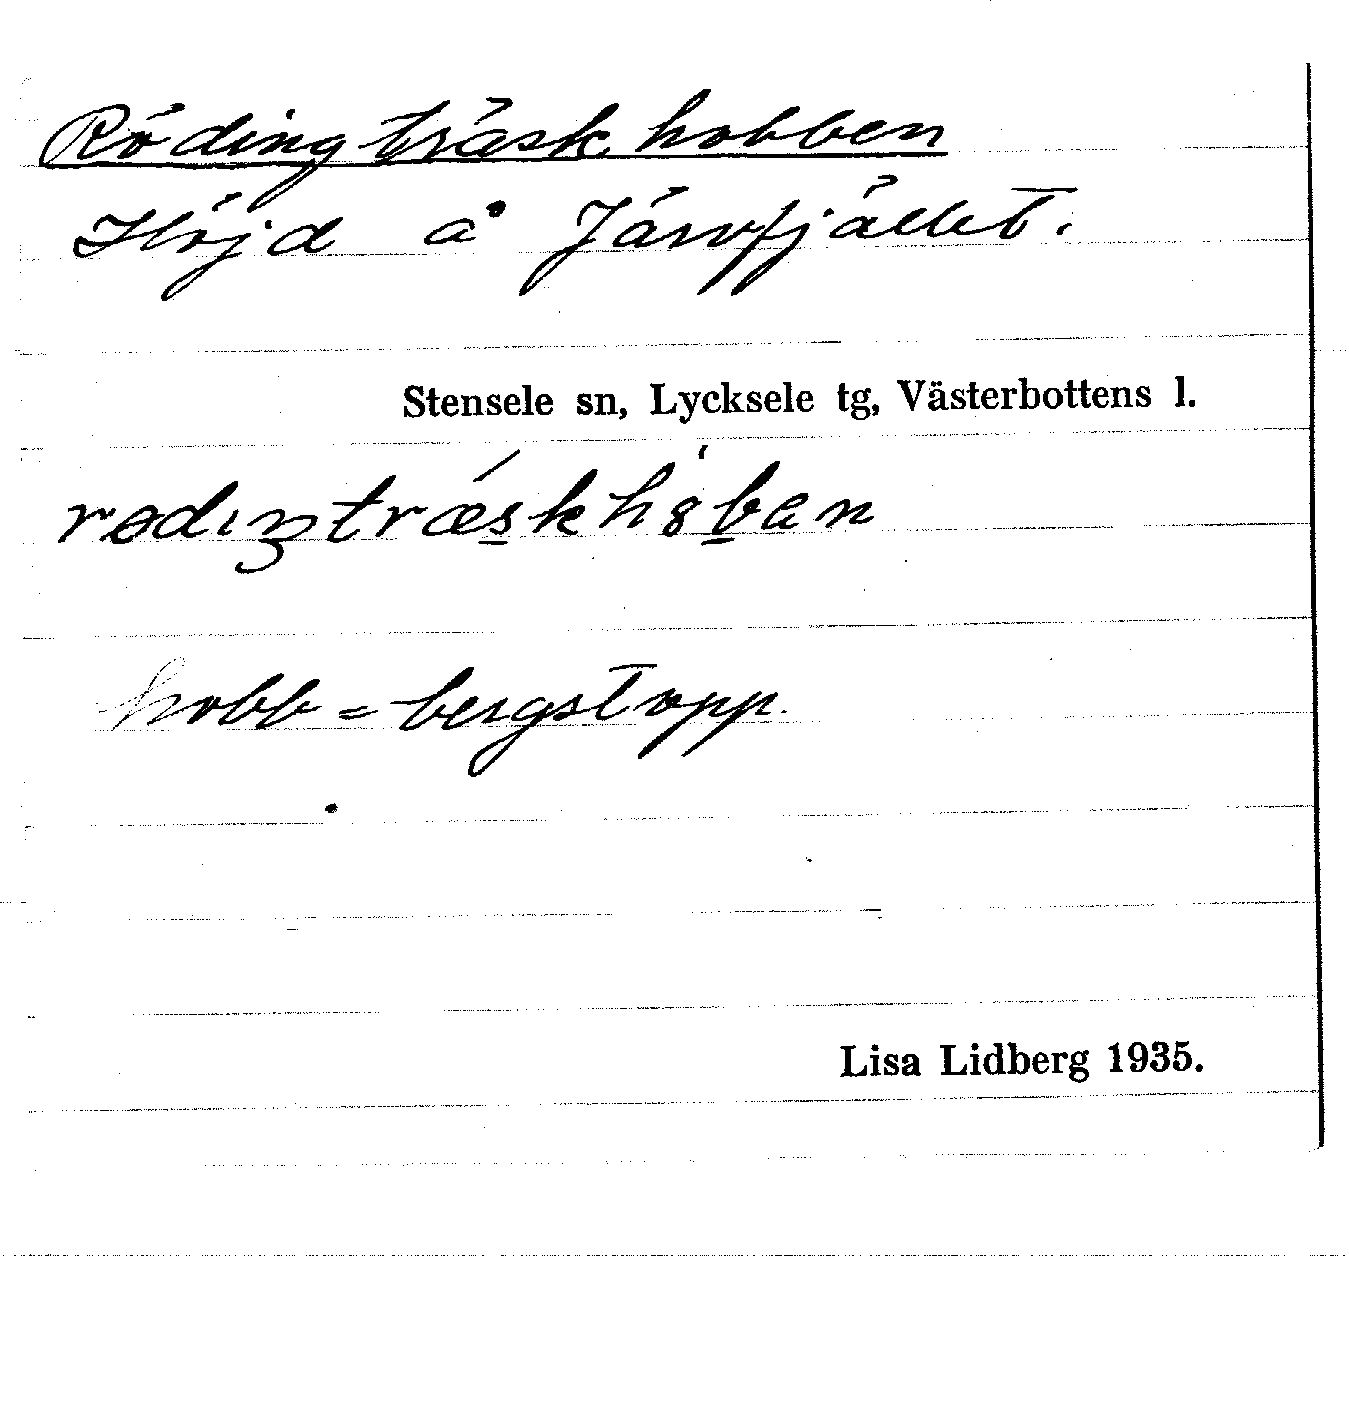 Rödingträskhobben
Höjd å Järvfjället.
Stensele sn, Lycksele tg, Västerbottens l.
rødıŋtræ´s̲kh8'b̲en
hobb = bergstopp.
Lisa Lidberg 1935.